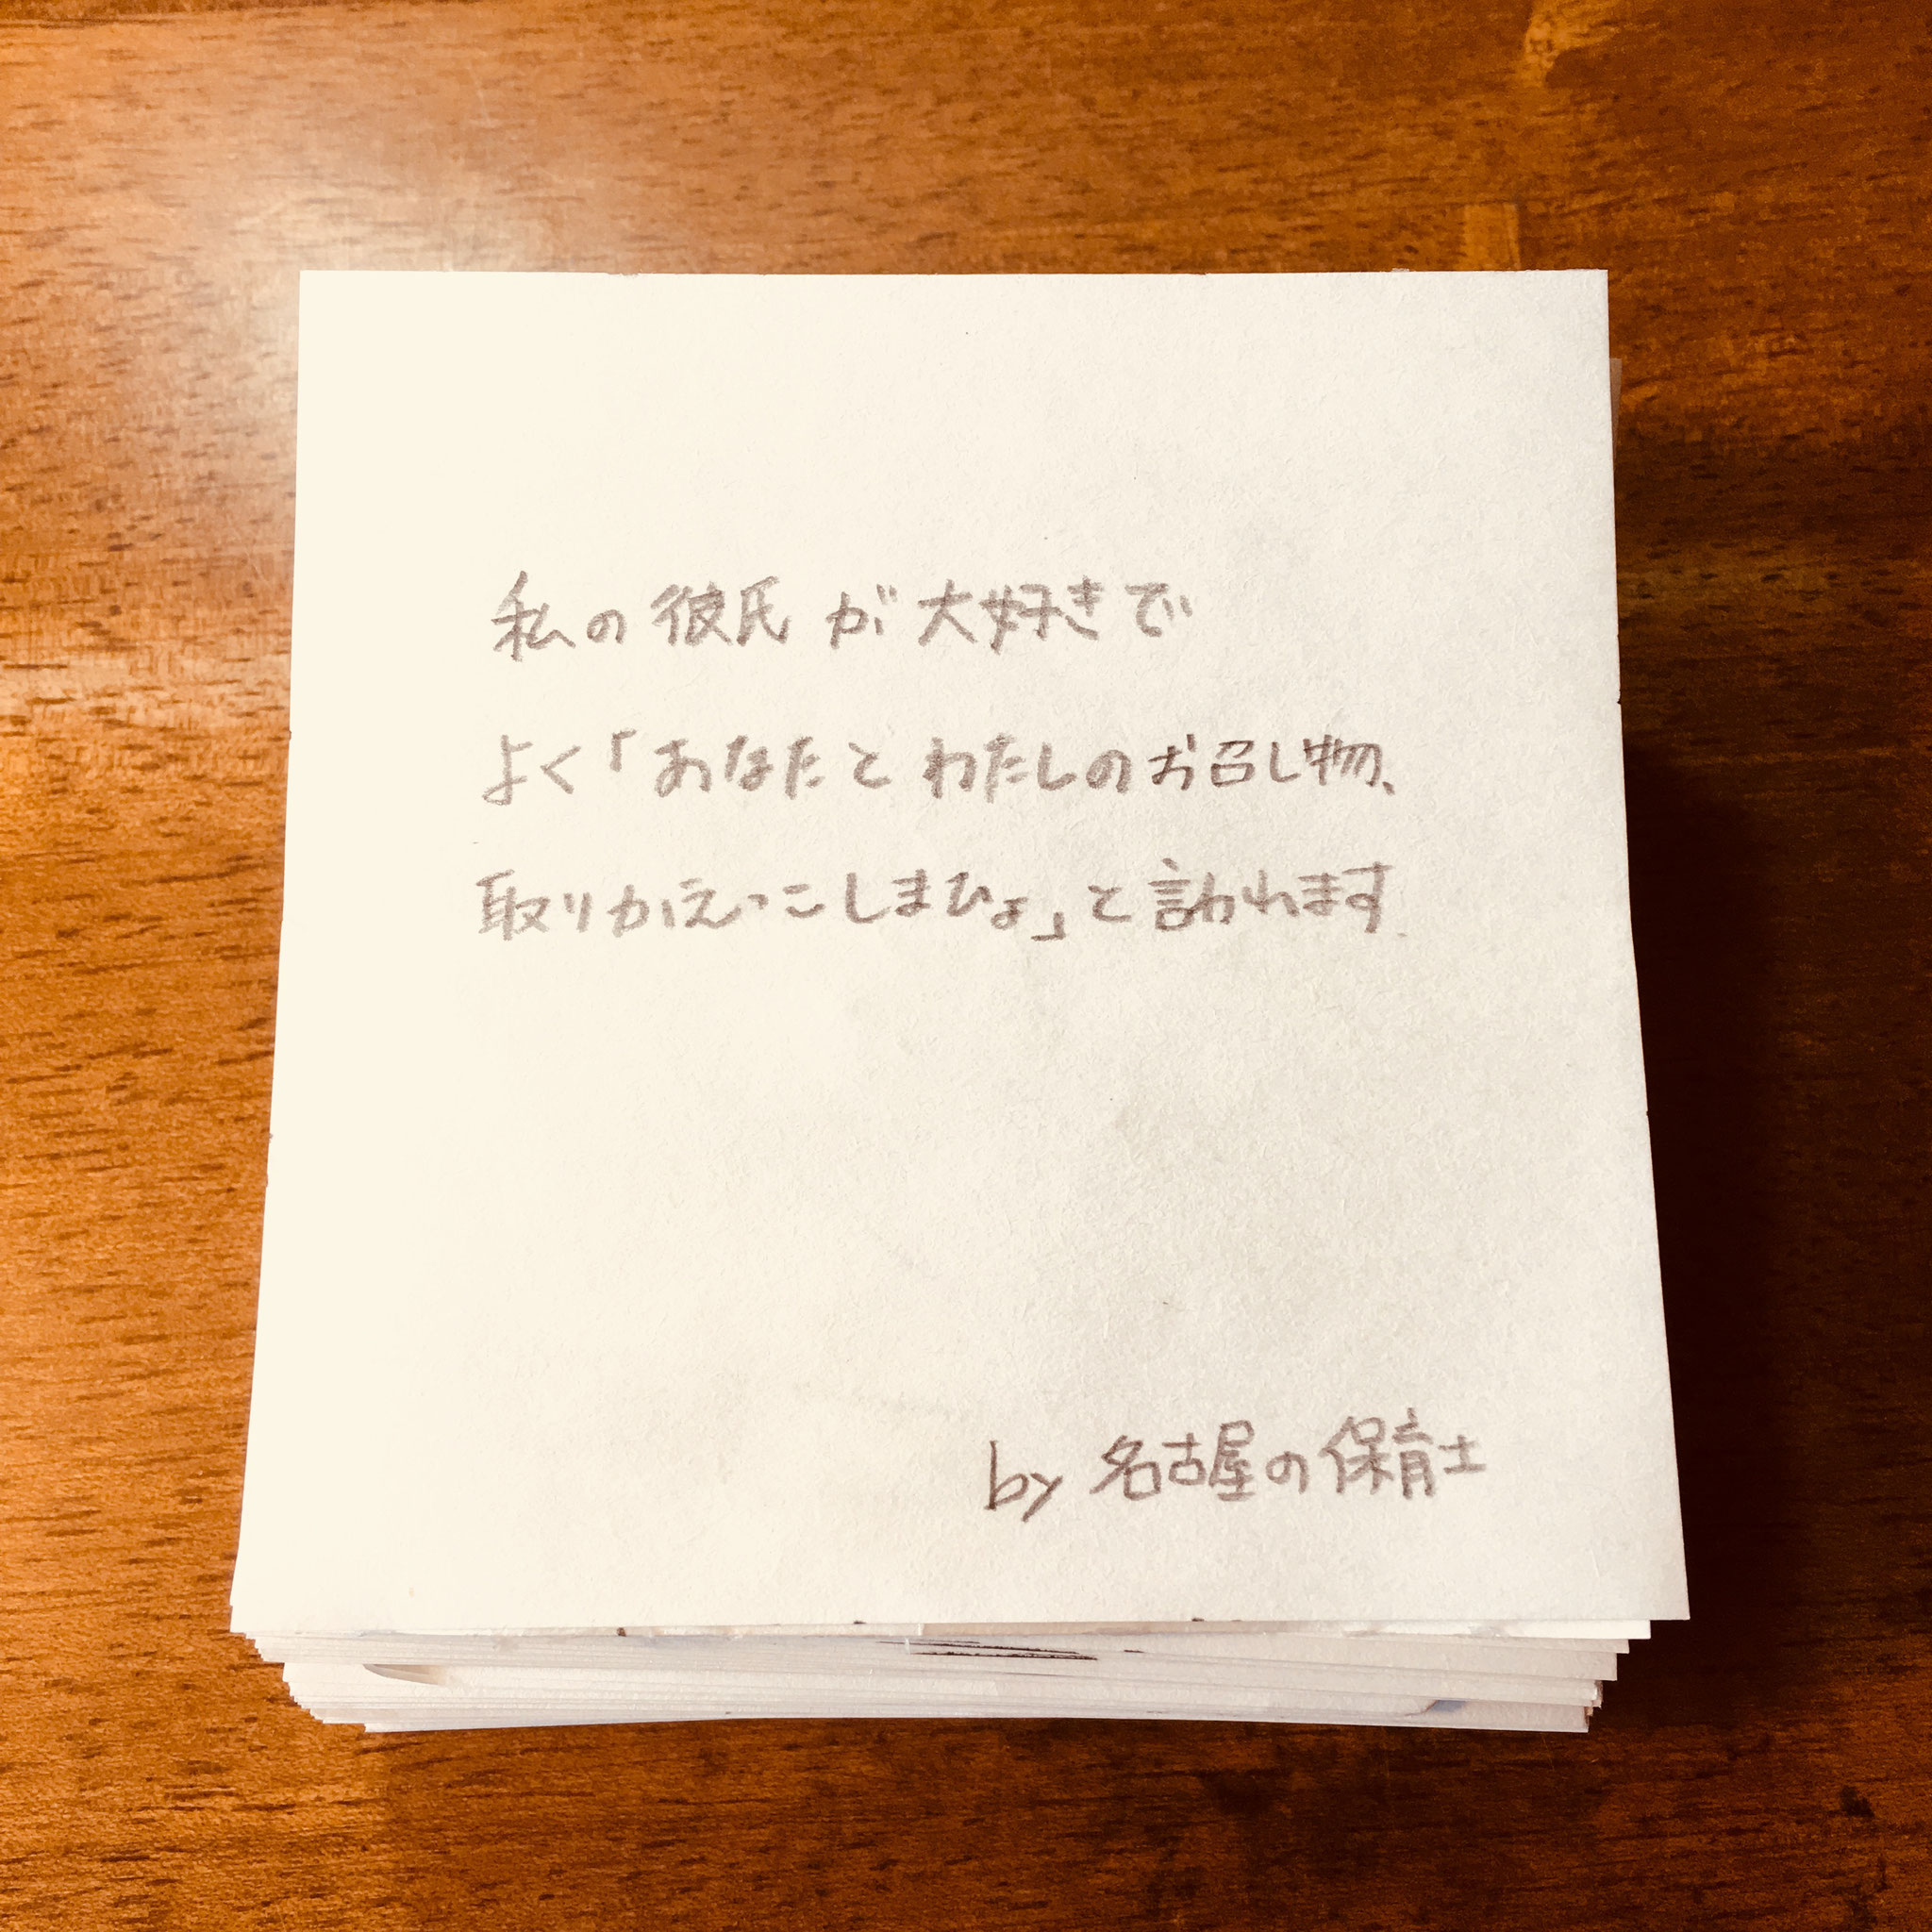 私の彼氏が大好きで
よく「あなたとわたしのお召し物、
取りかえっこしまひょ」と訊かれます.
by 名古屋の保育士